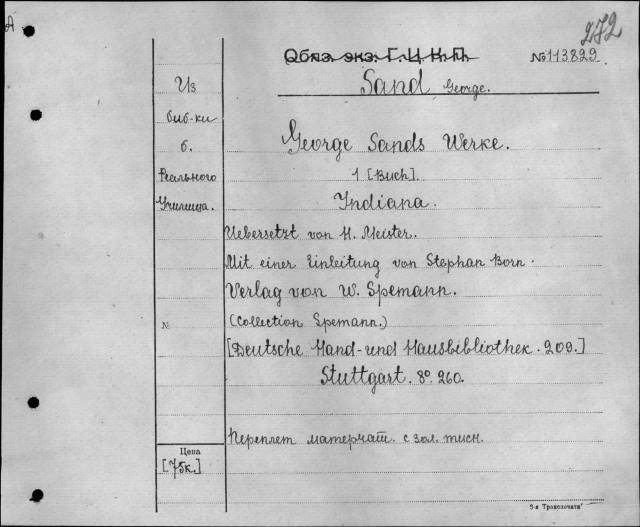 А
272
Обяз. экз. Г. Ц. К. П.
№113829
Sand George.
Из
биб-ки
б.
Реального
Училища.
George Sands Werke.
1 [Buch].
Indiana.
Uebersetzt von H. Meister.
Mit einer Einleitung von Stephan Born.
Verlag von W. Spemann.
№
(Collection Spemann.)
[Deutsche Hand-und Hausbibliothek. 209.]
Stuttgart. 8° 260.
Переплет матерчат. с зол. тисн.
Цена
[75к.]
3-я Транспечати